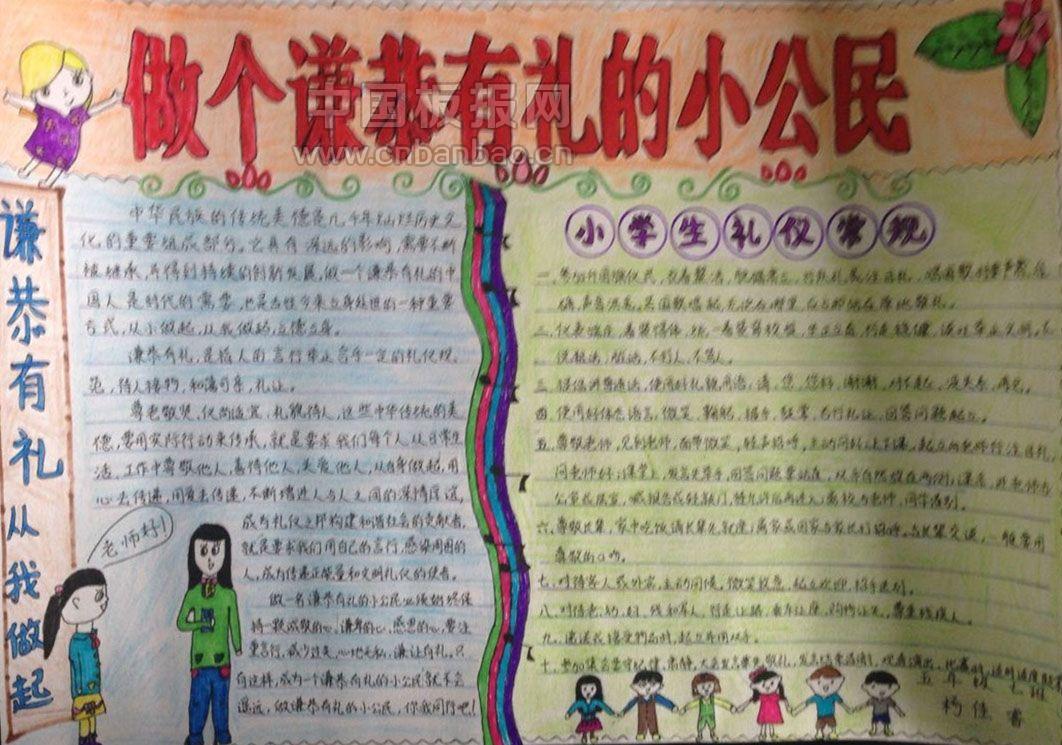 做个谦恭有礼的小公民
中国板报网
www.cnbanbao.cn
谦恭有礼从我做起
中华民族的传统美德是几千年灿烂历史文
化的重要组成部分。它具有深远的影响,需要不断
被继承,并得到持续的创新发展,做一个谦恭有礼的中
国人是时代的需要,也是古往今来立身处世的一种重要
方式,从小做起,从我做起,立德立身。
谦恭有礼,是指人的言行举止合乎一定的礼仪规
范,待人接物,和蔼可亲,礼让。
尊老敬贤,仪尚适宜,礼貌待人,这些中华传统的美
德,要用实际行动来传承,就是要求我们每个人,从日常生
活、工作中尊敬他人,善待他人,关爱他人,从自身做起,用
心去传递,用爱去传递,不断增进人与人之间的深情厚谊,
成为礼仪之邦构建和谐社会的贡献者,
就是要求我们用自己的言行,感染周围的
人,成为传递正能量和文明礼仪的使者。
做一名谦恭有礼的小公民必须始终保
持一颗诚敬的心,谦卑的心,感恩的心,要注
重言行,减少过失,心地无私,谦让有礼。只
有这样,成为一个谦恭有礼的小公民就不会
遥远,做谦恭有礼的小公民,你我同行吧!
老师好!
小学生礼仪常规
一、参加升国旗仪式,衣着整洁,脱帽肃立,行队礼或注目礼,唱国歌时要严肃,准
确,声音洪亮,
二、仪表端庄,着装得体,统一着装穿校服,坐正立直,行走稳健,谈吐举止文明,不
说粗话,脏话,不打人、不骂人。
三、提倡讲普通话,使用好礼貌用语:请、您、您好、谢谢、对不起、没关系、再见。
四、使用好体态语言,微笑、鞠躬、握手、鼓掌、右行礼让、回答问题起立。
五、尊敬老师,见到老师,面带微笑,轻声招呼,主动问好;上下课,起立向老师行注目礼,
问老师好;课堂上,发言先举手,回答问题要站直,双手自然放在两侧;课后,进老师办
公室或居室,喊报告或轻敲门,经允许后再进入;离校与老师、同学道别。
六、尊敬长辈,家中吃饭请长辈先就座;离家或回家与家长打招呼;与长辈交谈,一般要用
尊敬的口吻。
七、对待客人或外宾,主动问候,微笑致意,起立欢迎,招手送别。
八、对待老、幼、妇、残和军人,行走让路,乘车让座,购物让先,尊重残疾人。
九、递送或接受物品时,起立并用双手。
十、参加集会要守纪律,肃静,大会发言要先敬礼,
五年级七班
杨佳睿